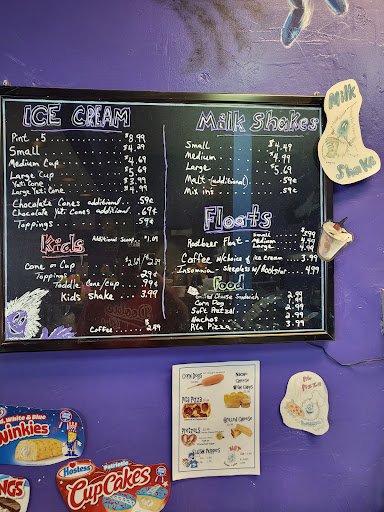 ICE CREAM
Pint .5 $8.99
Small $4.29
Medium Cup $4.69
Large Cup $5.69
Yeti Cone $3.99
Large Yeti Cone $4.99
Chocolate Cones additional 59¢
Chocolate Yeti Cones additional 69¢
Toppings 59¢
Kids
Additional Scoop $1.09
Cone or Cup $2.69/$2.89
Toppings 29¢
Toddle Cone/Cup 99¢
Kids shake 3.99
Coffee 2.49
Milk Shakes
Small $4.49
Medium $4.99
Large $5.69
Malt (additional) 59¢
Mix ins 59¢
Floats
Rootbeer Float
Small
Medium
Large 4.99
Coffee w/choice of ice cream 3.99
Insomnia Sleepless w/Rockstar 4.99
Food
Grilled Cheese Sandwich 2.99
Corn Dog
Soft Pretzel
Nachos
Pita Pizza 3.99
Milk
Shake
Corn Dogs
Pita Pizza
Grilled Cheese
Pretzels
Milk
White & Blue
winkies
Hostess
CupCakes
NGS